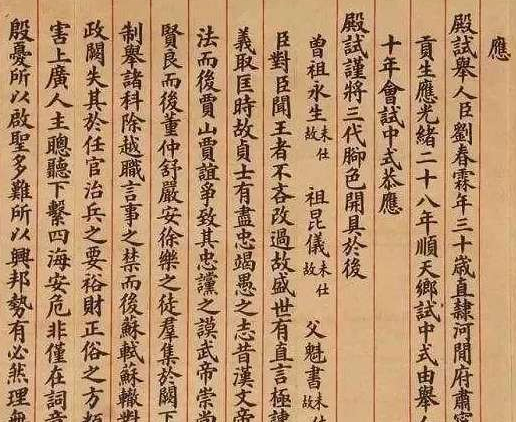 應
殿試舉人臣劉春霖年三十歲直隸河間府肅寧
貢生應光緒二十八年順天鄉試中式由舉人
十年會試中式恭應
殿試謹將三代腳色開具於後
曾祖永生未仕故 祖昆儀未仕故 父魁書未仕
臣對臣聞王者不吝改過故盛世有直言極諫
義取匡時故貞士有盡忠竭愚之志昔漢文帝
法而後賈山賈誼爭致其忠讜之謨武帝崇尚
賢良而後董仲舒嚴安徐樂之徒羣集於闕下
制舉諸科除越職言事之禁而後蘇軾蘇轍對
政闕失其於任官治兵之要裕財正俗之方類
害上廣人主聰聽下繫四海安危非僅在詞章
殷憂所以啟聖多難所以興邦勢有必然理無